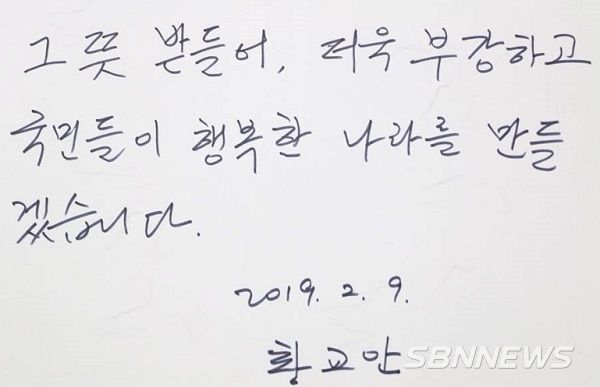 그 뜻 받들어, 더욱 부강하고
국민들이 행복한 나라를 만들
겠습니다.
2019. 2. 9.
황교안
SBNNEWS